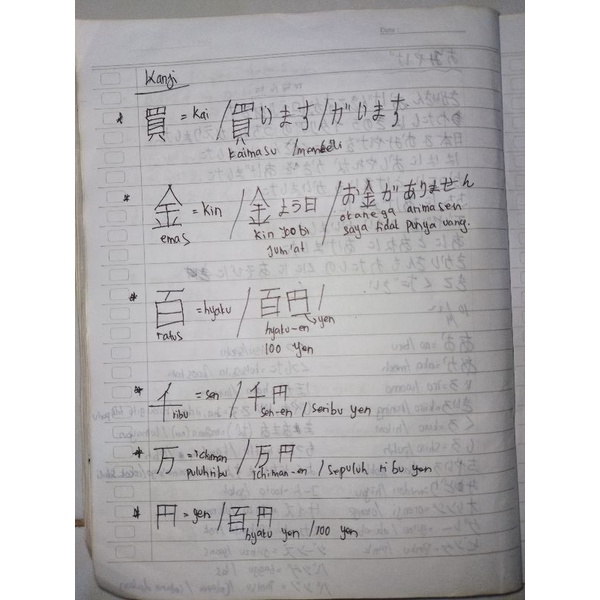 Date :
Kanji
* 買 = kai / 買います / がいます
kaimasu / membeli
* 金 = kin / 金よう日 / お金がありません
emas kin yoobi okane ga arimasen
Jum'at saya tidak punya uang.
* 百 = hyaku / 百円 /
ratus hyaku-en → yen
100 yen
* 千 = sen / 千円
ribu sen-en / seribu yen
* 万 = ichiman / 万円
puluh ribu ichiman-en / sepuluh ribu yen
* 円 = yen / 百円
hyaku yen / 100 yen